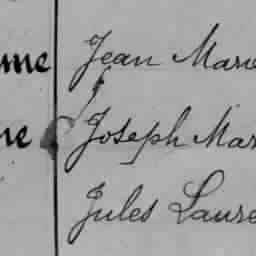 me Jean Marie
ne Joseph Mar
Jules Laure